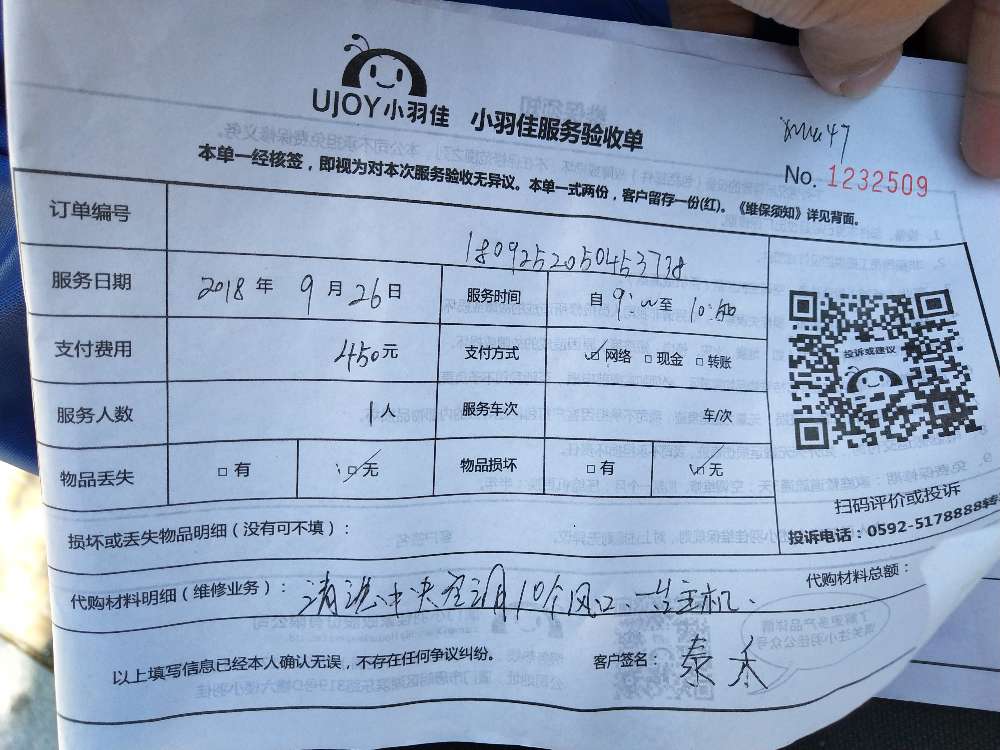 UJOY小羽佳 小羽佳服务验收单
No. 1232509
本单一经核签，即视为对本次服务验收无异议。本单一式两份，客户留存一份(红)。《维保须知》详见背面。
订单编号 1809252050453738
服务日期 2018年9月26日 服务时间 自9: 至10:
支付费用 450元 支付方式 ☑网络 □现金 □转账
服务人数 1人 服务车次 车/次
物品丢失 □有 ☑无 物品损坏 □有 ☑无
投诉或建议
扫码评价或投诉
投诉电话：0592-5178888转
损坏或丢失物品明细（没有可不填）：
代购材料明细（维修业务）：清洗中央空调10个风口、一台主机、
代购材料总额：
以上填写信息已经本人确认无误，不存在任何争议纠纷。 客户签名：泰禾